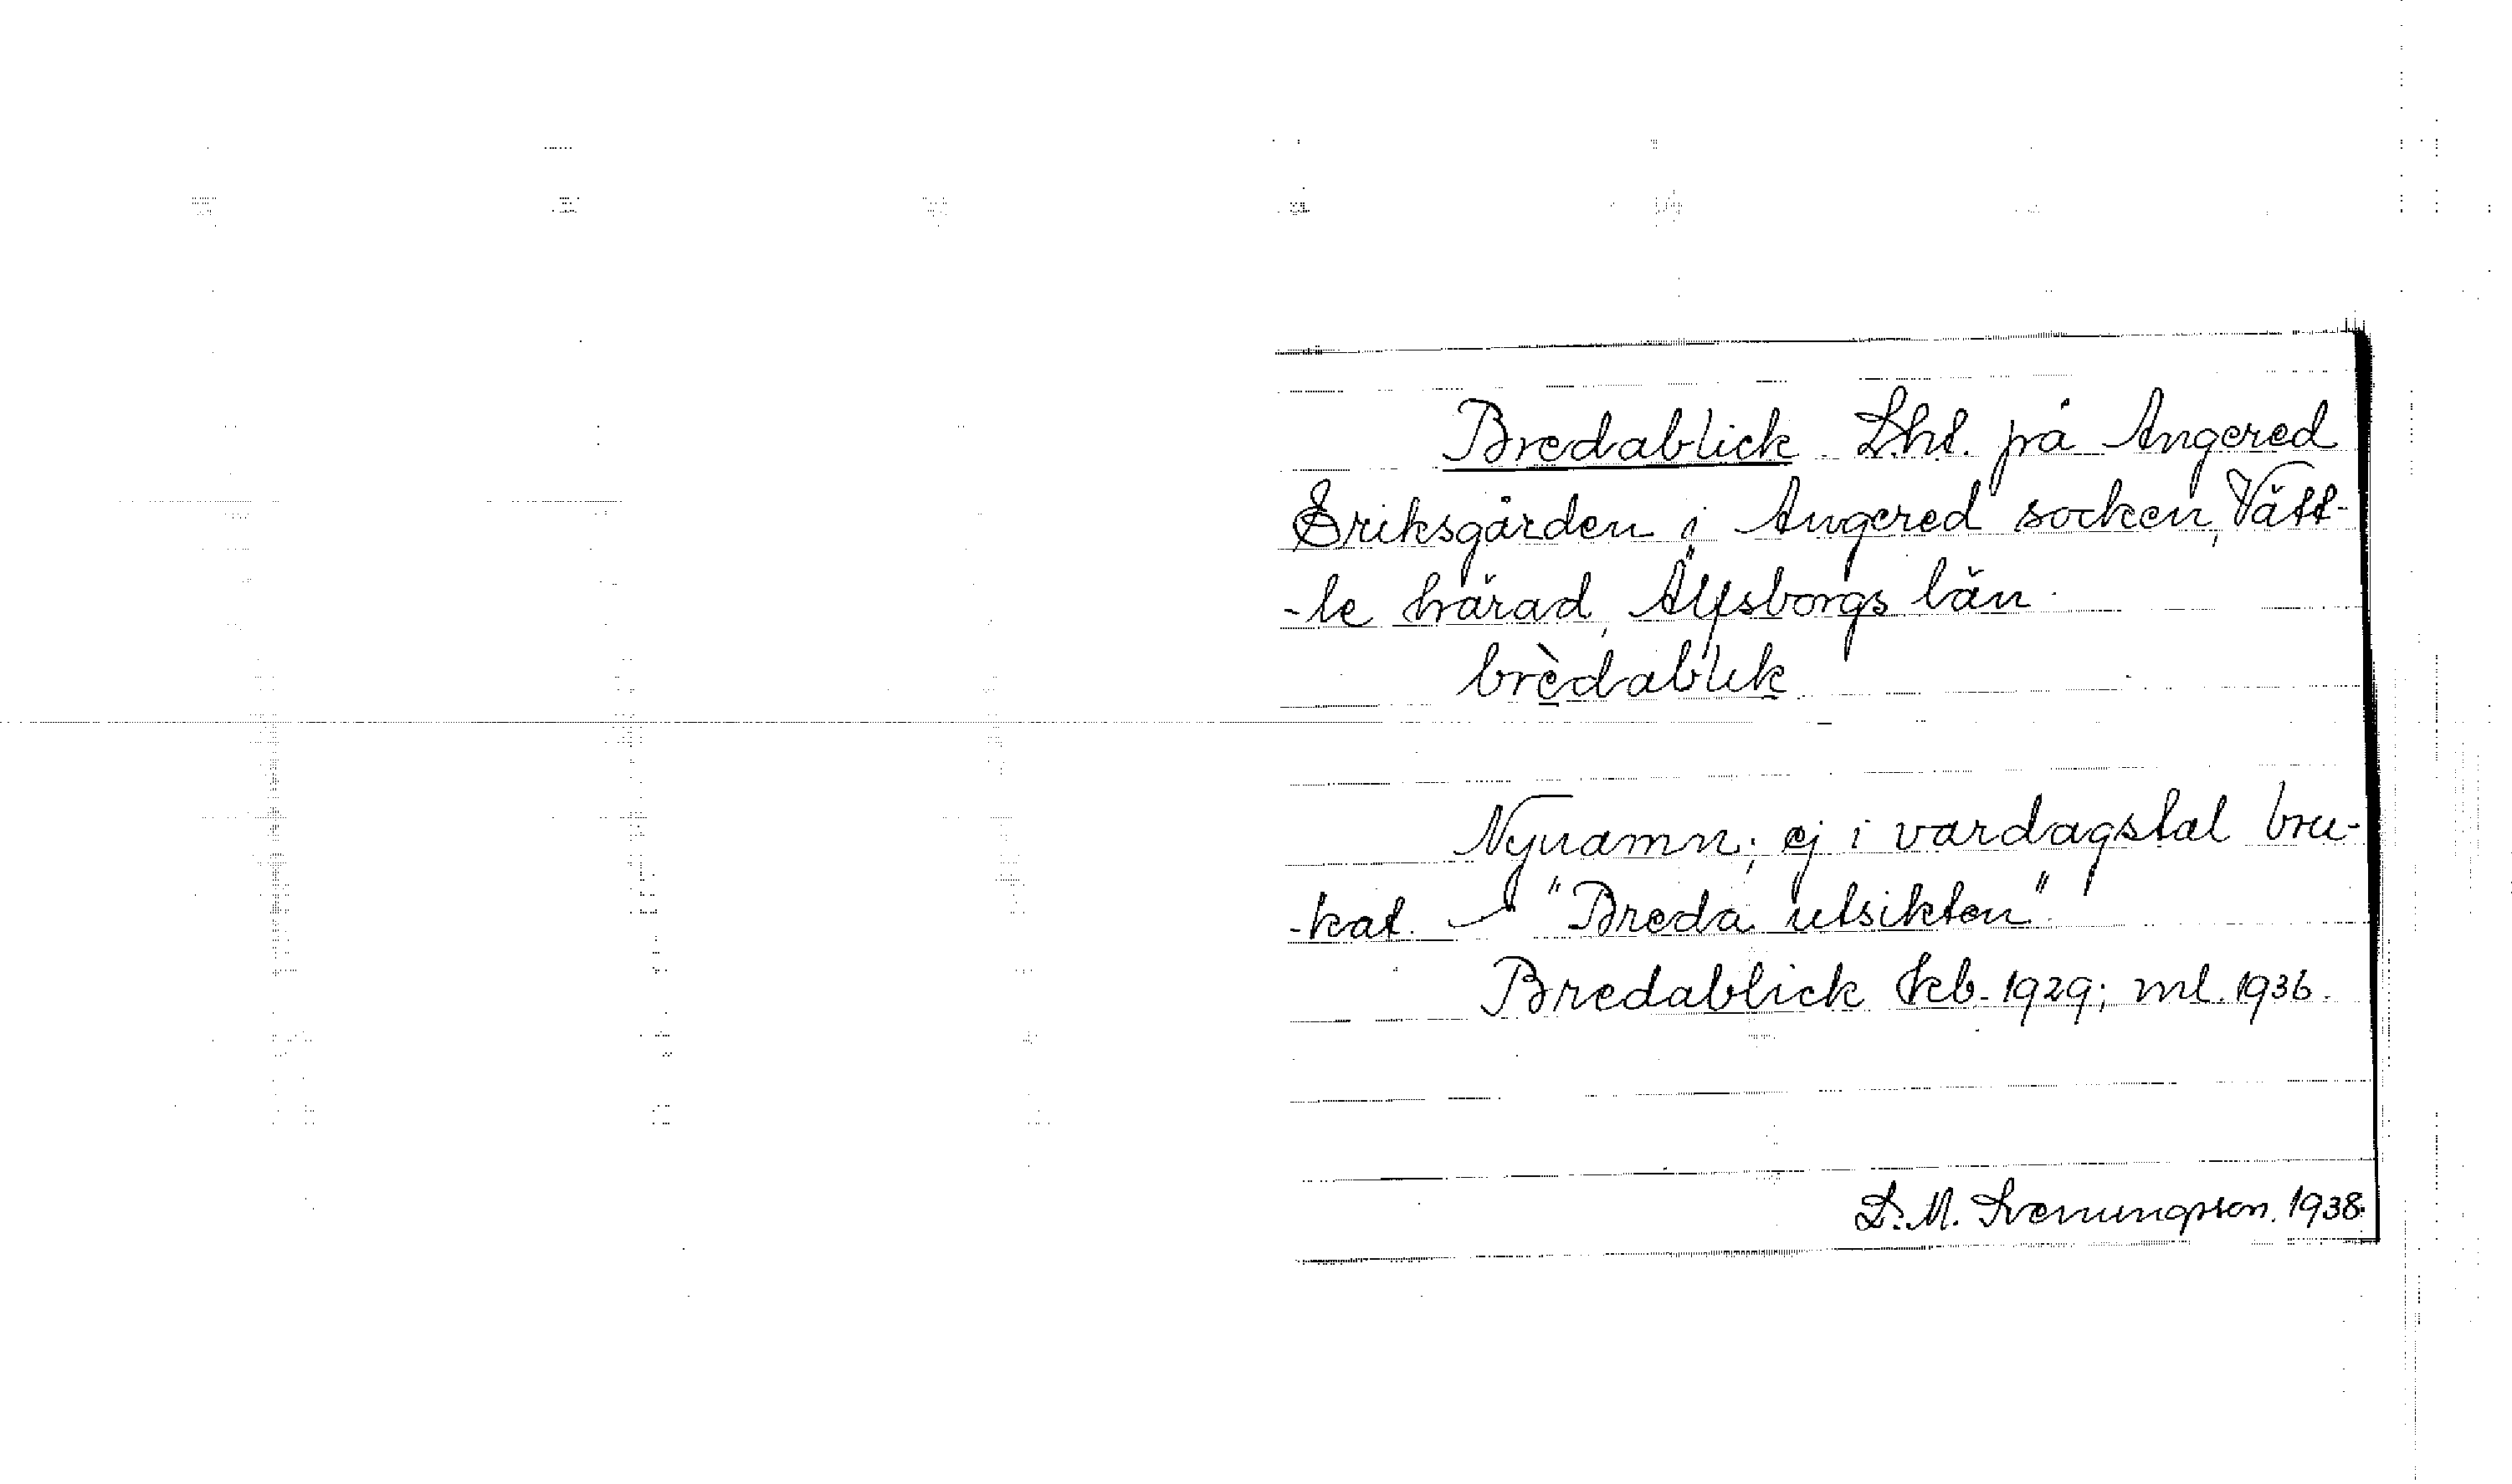 Bredablick Lht. på Angered
Eriksgården i Angered socken, Vätt-
-le härad, Älfsborgs län.
brèdablik
Nynamn; ej i vardagstal bru-
-kat. "Breda utsikten".
Bredablick kb. 1929; ml. 1936.
D. M. Svenungsson. 1938.